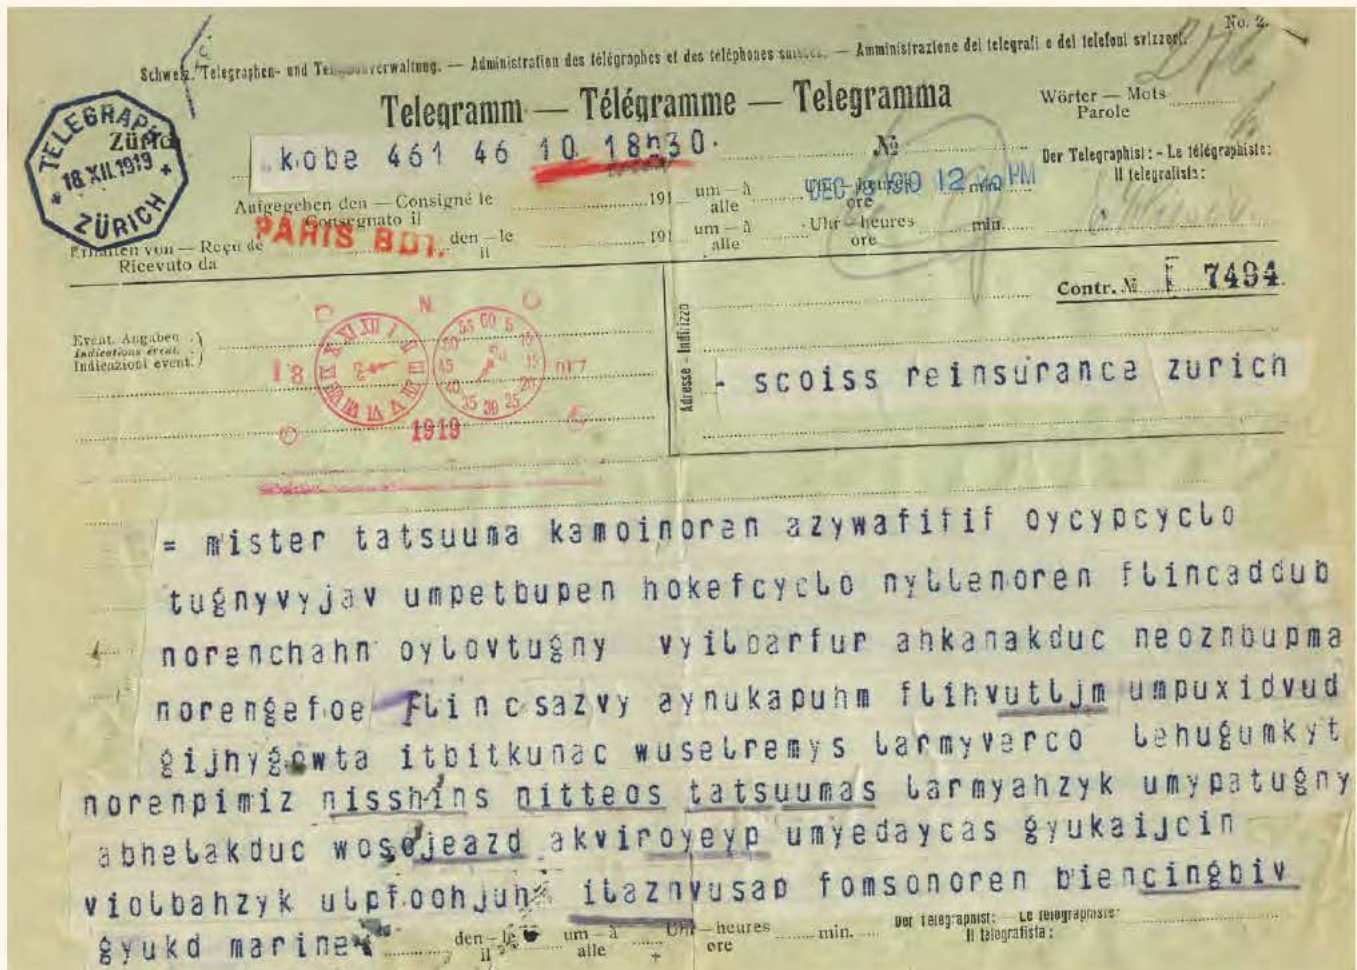 No. 2.
Schweiz. Telegraphen- und Telephonverwaltung. — Administration des télégraphes et des téléphones suisses. — Amministrazione dei telegrafi e dei telefoni svizzeri.
Telegramm — Télégramme — Telegramma
Wörter — Mots
Parole
TELEGRAPH
Zürich
18.XII.1919
ZÜRICH
kobe 461 46 10 18h30.
№
Der Telegraphist: - Le télégraphiste:
Il telegrafista:
Aufgegeben den — Consigné le 191 um — à
Consegnato il alle ore
DEC 12 PM
min.
PARIS BD1.
Erhalten von — Reçu de den — le 191 um — à Uhr — heures min.
Ricevuto da il alle ore
Contr. № 7494
Event. Angaben
Indications évent.
Indicazioni event.
Adresse — Indirizzo
18
1919
- scoiss reinsurance zurich
= mister tatsuuma kamoinoren azywafifif oycypcyclo
tugnyvyjav umpetbupen hokefcyclo nyllenoren flincaddub
norenchahn oylovtugny vyilbarfur ahkanakduc neoznbupma
norengefoe flincsazvy aynukapuhm flihvutljm umpuxidvud
gijhygowta itbitkunac wuselremys larmyverco lehugumkyt
norenpimiz nisshins nitteos tatsuumas larmyahzyk umypatugny
abhelakduc wosojeazd akviroyeyp umyedaycas gyukaijcin
violbahzyk ulpfoohjuh ilaznvusap fomsonoren biencingbiv
gyukd marine
den — le um — à Uhr — heures min.
il alle ore
Der Telegraphist: Le télégraphiste:
Il telegrafista: